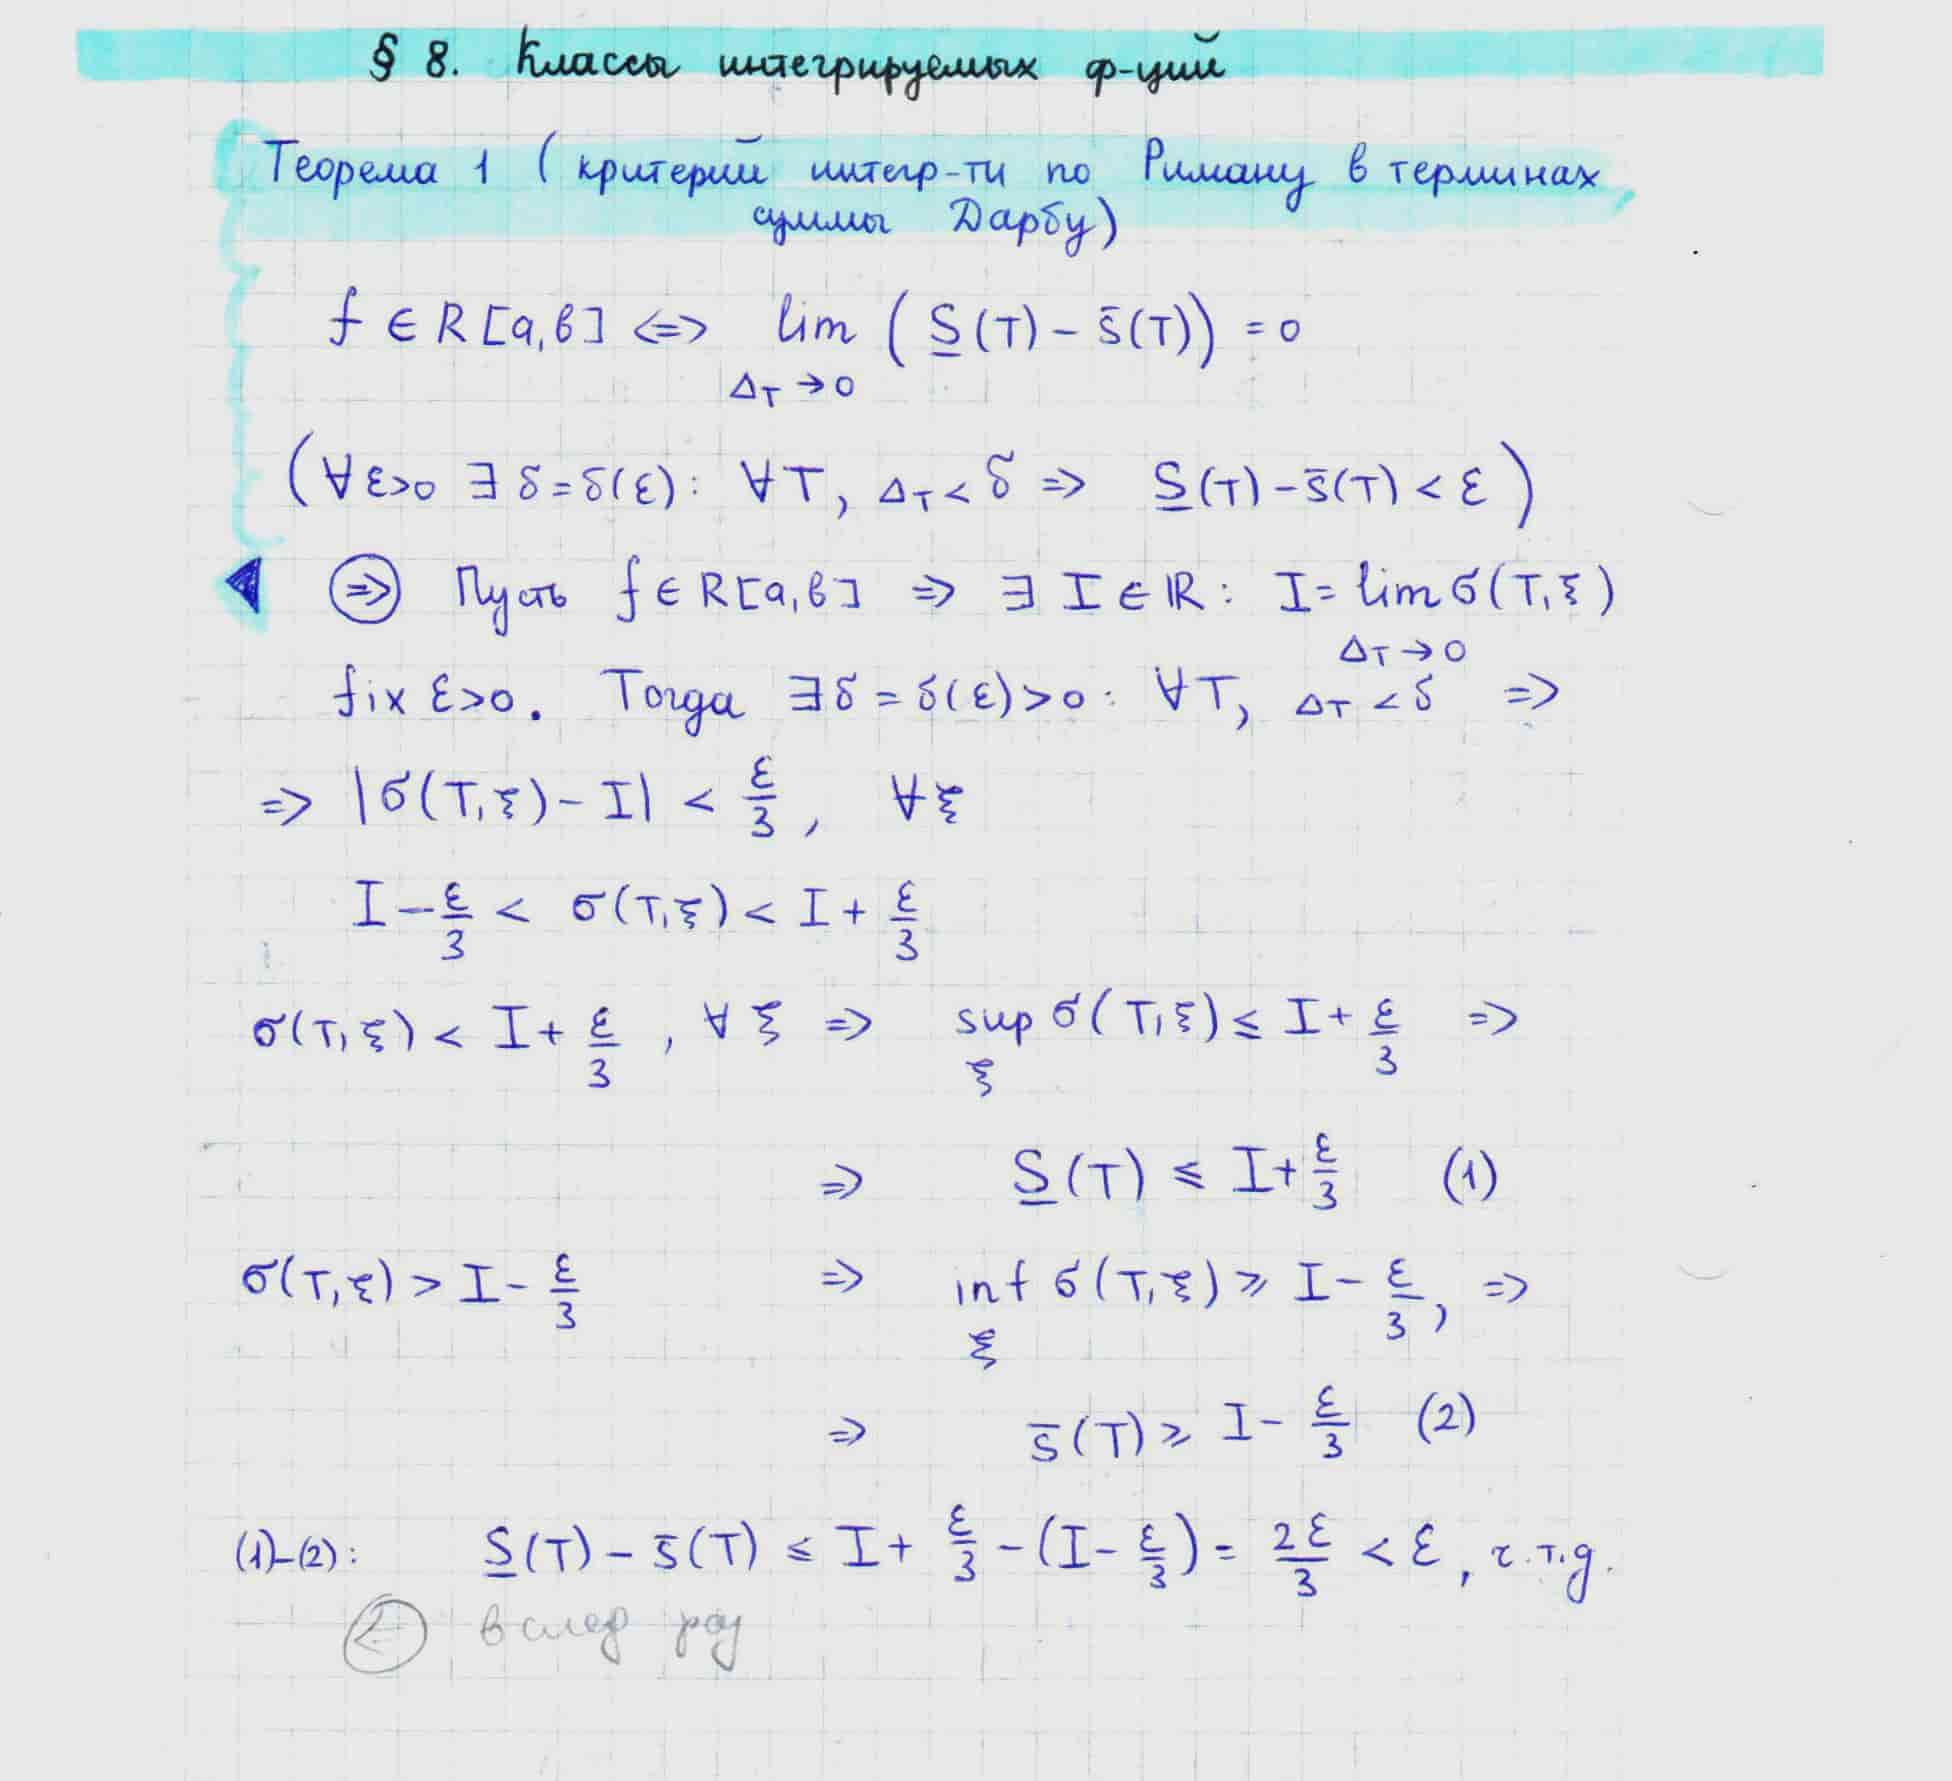 § 8. Классы интегрируемых ф-ций
Теорема 1 (критерий интегр-ти по Риману в терминах
суммы Дарбу)
f ∈ R[a,b] <=> lim (S̲(T) − s̄(T)) = 0
Δ_T → 0
(∀ε>0 ∃ δ=δ(ε): ∀T, Δ_T < δ => S̲(T) − s̄(T) < ε)
◀ (=>) Пусть f ∈ R[a,b] => ∃ I ∈ ℝ: I = lim σ(T,ξ)
Δ_T → 0
fix ε>0. Тогда ∃δ = δ(ε)>0: ∀T, Δ_T < δ =>
=> |σ(T,ξ) − I| < ε/3, ∀ξ
I − ε/3 < σ(T,ξ) < I + ε/3
σ(T,ξ) < I + ε/3, ∀ξ => sup σ(T,ξ) ⩽ I + ε/3 =>
ξ
=> S̲(T) ⩽ I + ε/3 (1)
σ(T,ξ) > I − ε/3 => inf σ(T,ξ) ⩾ I − ε/3, =>
ξ
=> s̄(T) ⩾ I − ε/3 (2)
(1)-(2): S̲(T) − s̄(T) ⩽ I + ε/3 − (I − ε/3) = 2ε/3 < ε, ч.т.д.
(<=) в след раз